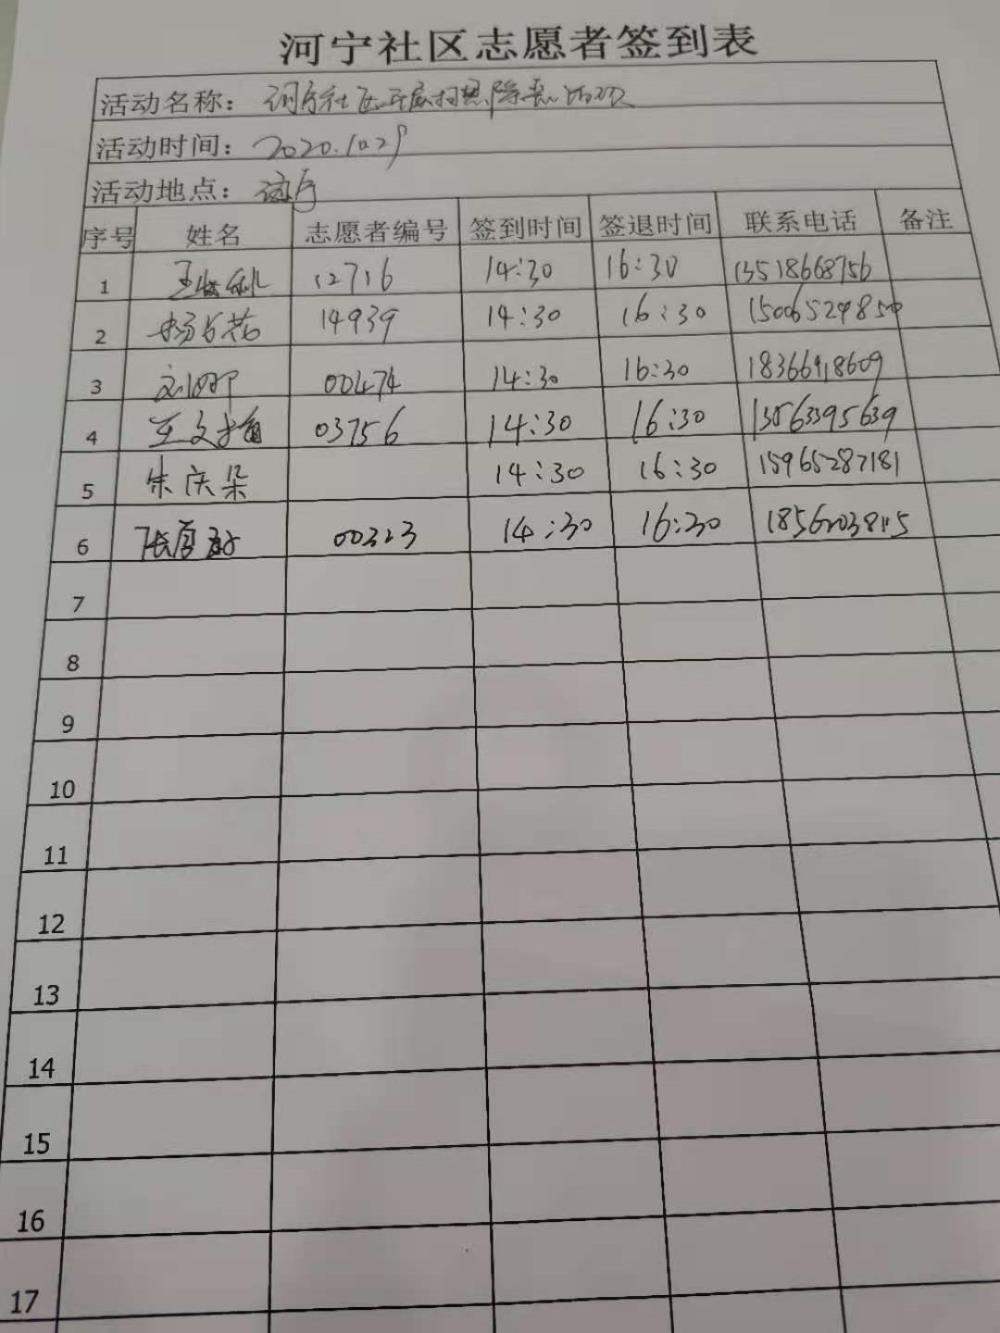 河宁社区志愿者签到表
活动名称: 河宁社区开展扫黑除恶活动
活动时间: 2020.10.29
活动地点: 河宁
序号 姓名 志愿者编号 签到时间 签退时间 联系电话 备注
1 12716 14:30 16:30 13518668756
2 14939 14:30 16:30
3 00474 14:30 16:30 18366918609
4 03756 14:30 16:30 13563395639
5 朱庆朵 14:30 16:30 15965287181
6 00323 14:30 16:30
7
8
9
10
11
12
13
14
15
16
17